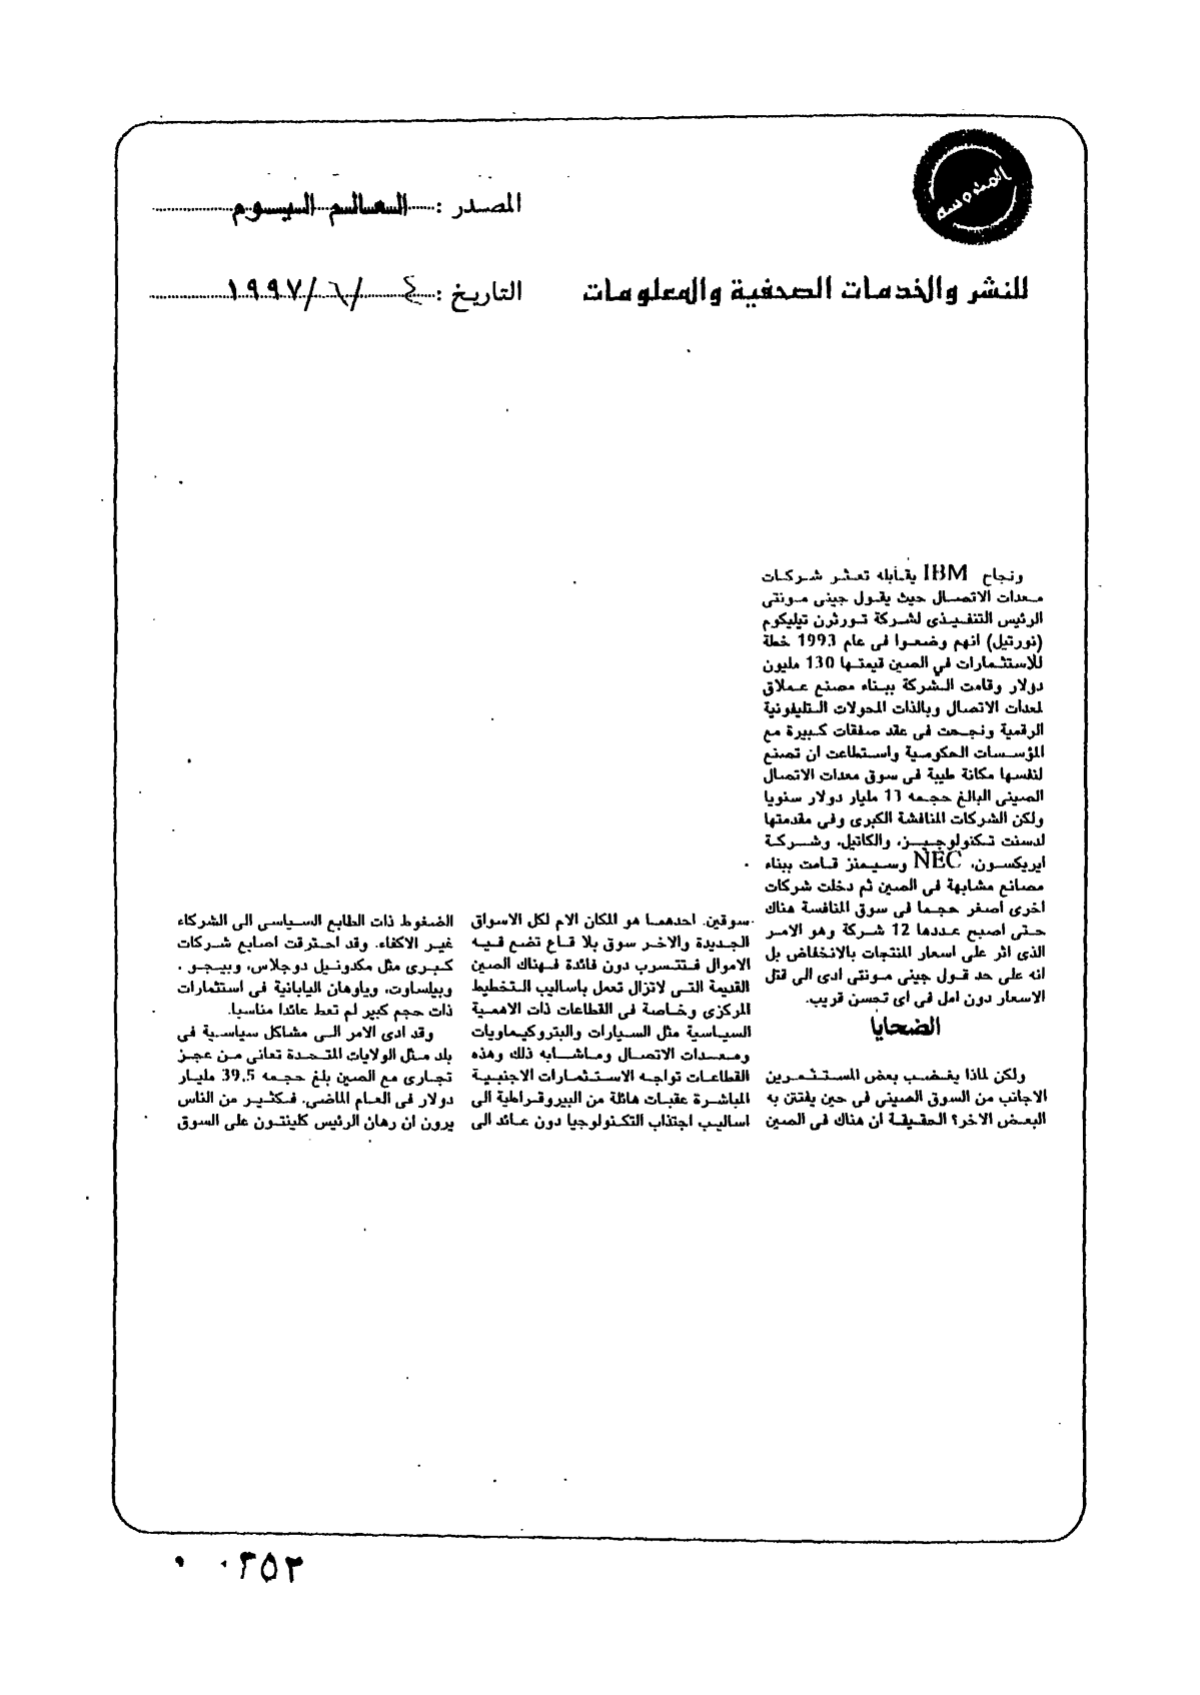 المدوسه
المصدر : العالم اليوم
للنشر والخدمات الصحفية والمعلومات
التاريخ : ٤ / ٦ / ١٩٩٧
ونجاح IBM يقابله تعثر شركات
معدات الاتصال حيث يقول جينى مونتى
الرئيس التنفيذى لشركة نورثرن تيليكوم
(نورتيل) انهم وضعوا فى عام 1993 خطة
للاستثمارات في الصين قيمتها 130 مليون
دولار وقامت الشركة ببناء مصنع عملاق
لمعدات الاتصال وبالذات المحولات التليفونية
الرقمية ونجحت فى عقد صفقات كبيرة مع
المؤسسات الحكومية واستطاعت ان تصنع
لنفسها مكانة طيبة فى سوق معدات الاتصال
الصينى البالغ حجمه 11 مليار دولار سنويا
ولكن الشركات المنافشة الكبرى وفى مقدمتها
لدسنت تكنولوجيز، والكاتيل، وشركة
ايريكسون، NEC وسيمنز قامت ببناء
مصانع مشابهة فى الصين ثم دخلت شركات
اخرى اصغر حجما فى سوق المنافسة هناك
حتى اصبح عددها 12 شركة وهو الامر
الذى اثر على اسعار المنتجات بالانخفاض بل
انه على حد قول جينى مونتى ادى الى قتل
الاسعار دون امل فى اى تحسن قريب.
الضحايا
ولكن لماذا يغضب بعض المستثمرين
الاجانب من السوق الصينى فى حين يفتتن به
البعض الاخر؟ الحقيقة ان هناك فى الصين
سوقين. احدهما هو المكان الام لكل الاسواق
الجديدة والاخر سوق بلا قاع تضع فيه
الاموال فتتسرب دون فائدة فهناك الصين
القديمة التى لاتزال تعمل باساليب التخطيط
المركزى وخاصة فى القطاعات ذات الاهمية
السياسية مثل السيارات والبتروكيماويات
ومعدات الاتصال وماشابه ذلك وهذه
القطاعات تواجه الاستثمارات الاجنبية
المباشرة عقبات هائلة من البيروقراطية الى
اساليب اجتذاب التكنولوجيا دون عائد الى
الضغوط ذات الطابع السياسى الى الشركاء
غير الاكفاء. وقد احترقت اصابع شركات
كبرى مثل مكدونيل دوجلاس، وبيجو ،
وبيلساوت، وياوهان اليابانية فى استثمارات
ذات حجم كبير لم تعط عائدا مناسبا.
وقد ادى الامر الى مشاكل سياسية فى
بلد مثل الولايات المتحدة تعانى من عجز
تجارى مع الصين بلغ حجمه 39,5 مليار
دولار فى العام الماضى. فكثير من الناس
يرون ان رهان الرئيس كلينتون على السوق
٠٣٥٢